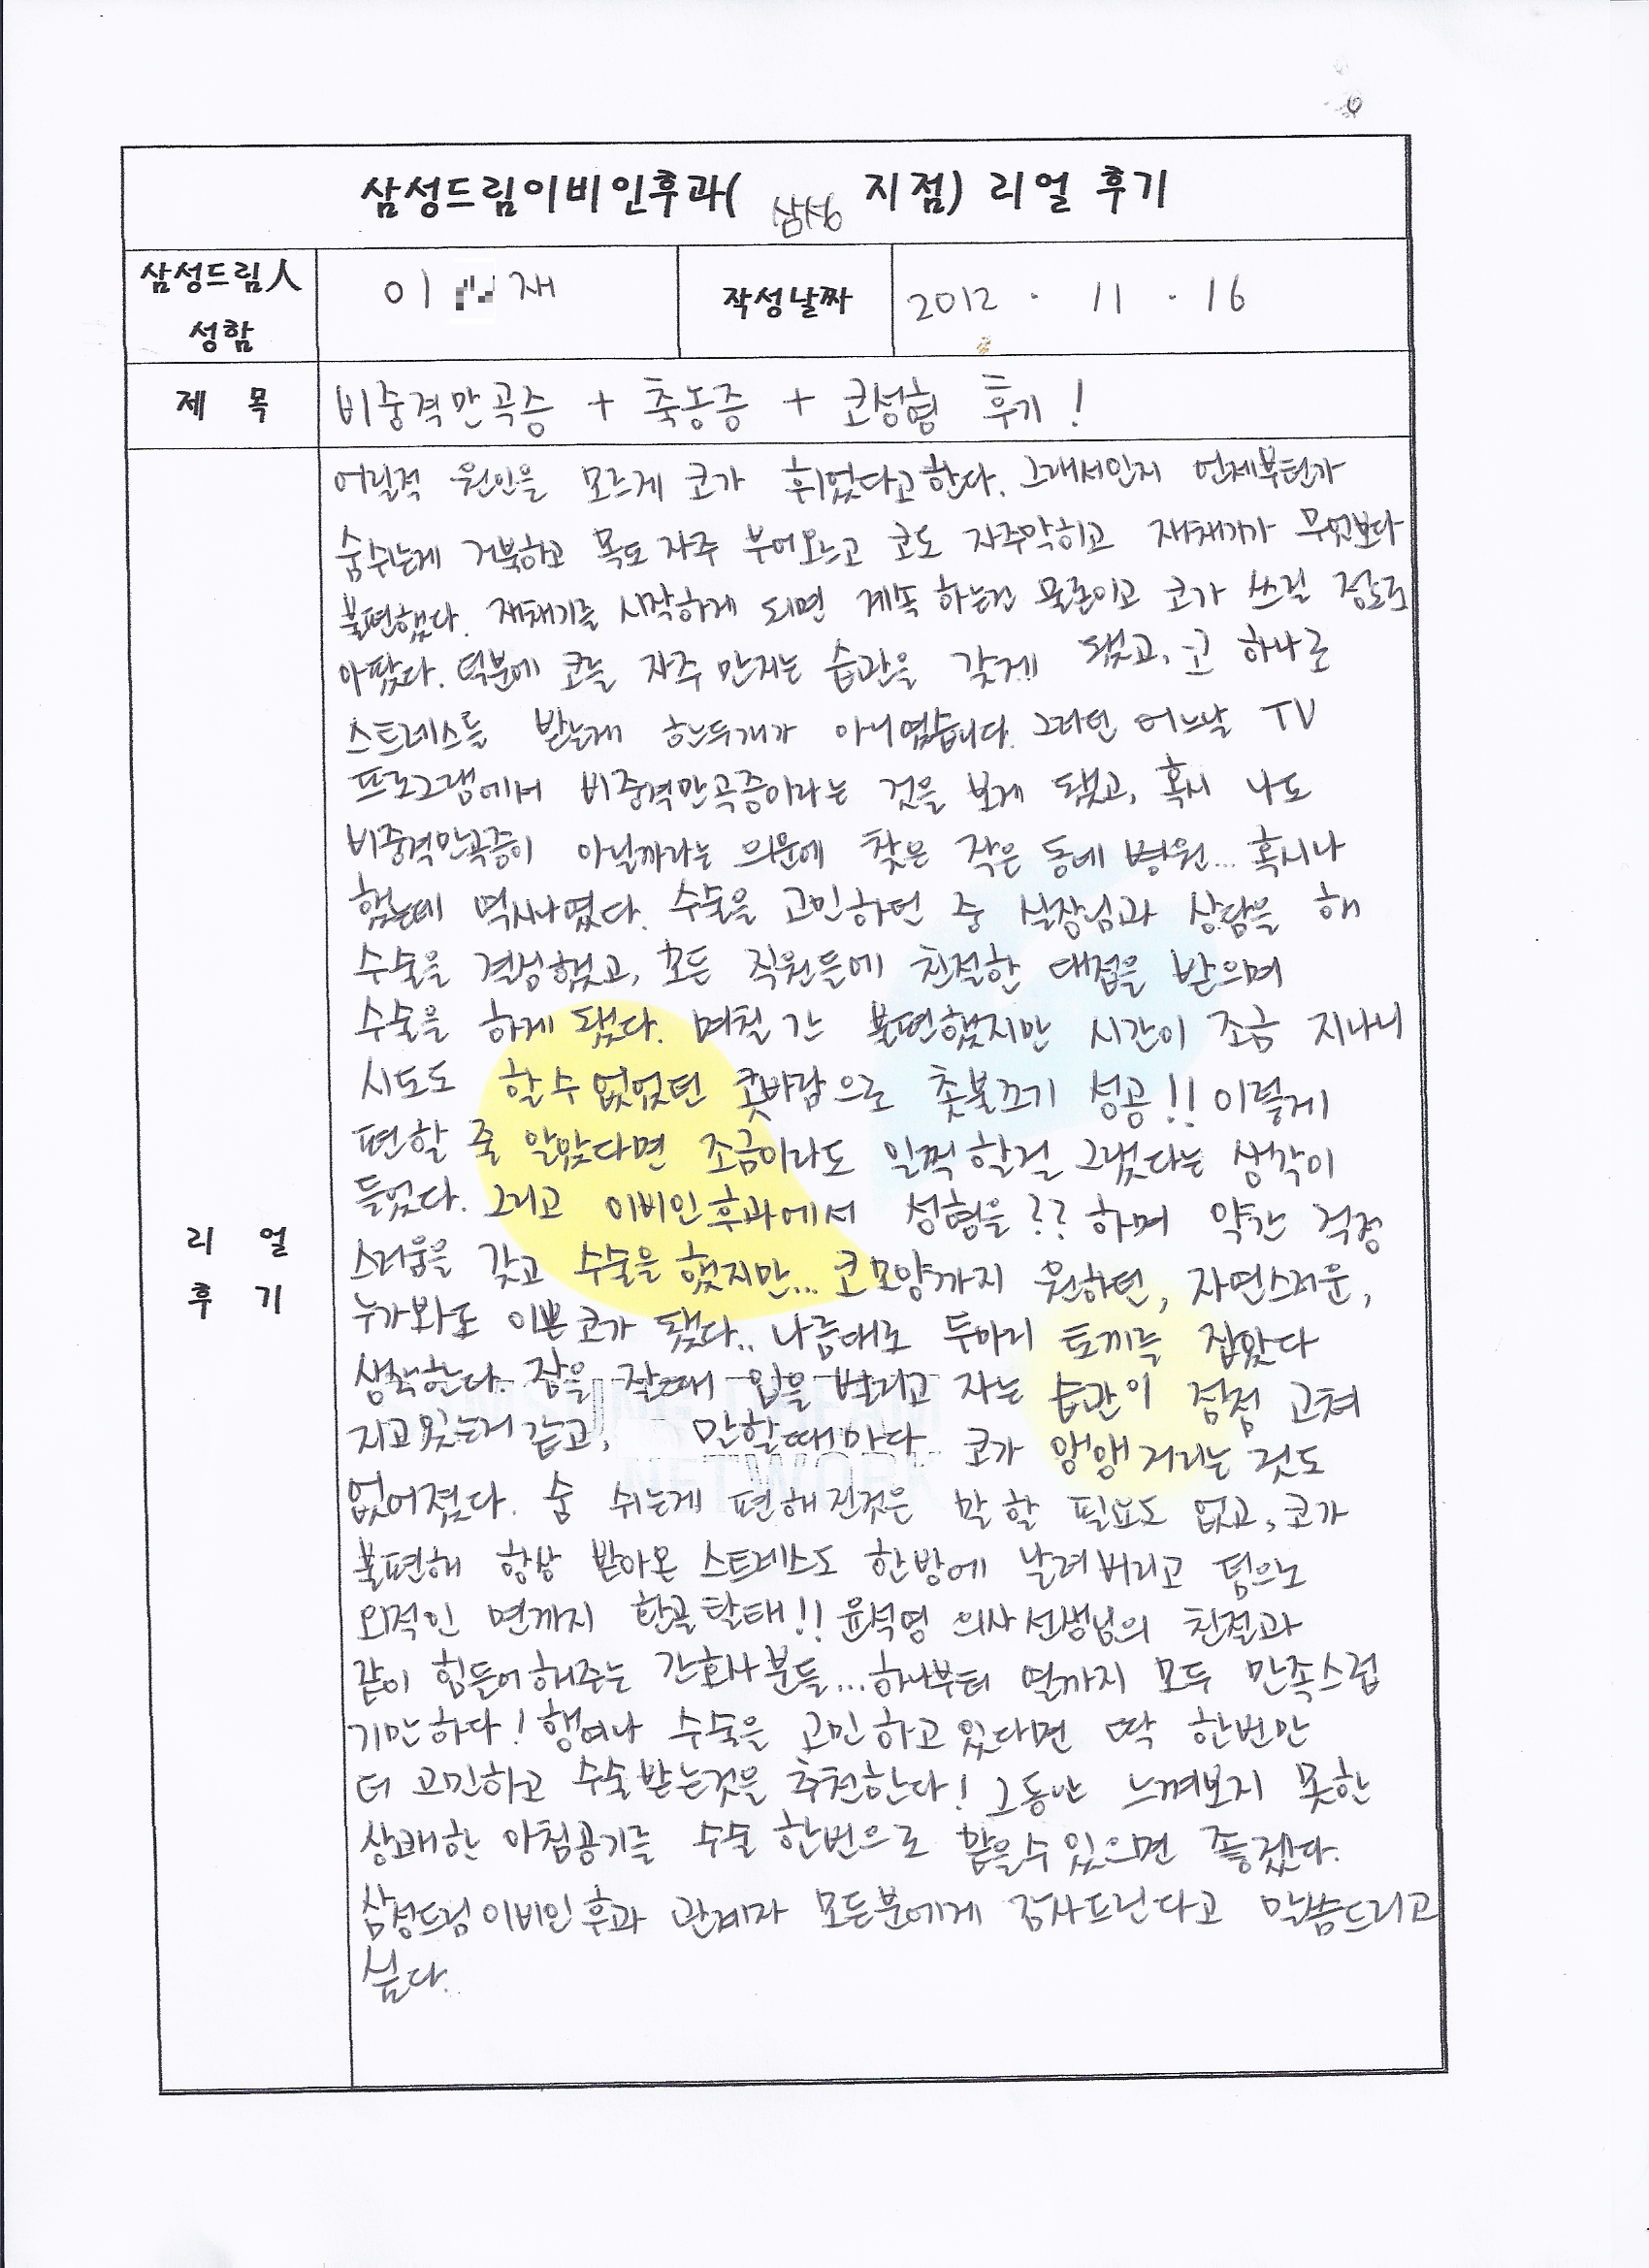 삼성드림이비인후과( 삼성 지점) 리얼 후기
삼성드림人 성함
이 재
작성날짜
2012 . 11 . 16
제 목
비중격만곡증 + 축농증 + 코성형 후기!
리 얼 후 기
어릴적 원인을 모르게 코가 휘었다고한다. 그래서인지 언제부턴가
숨쉬는게 거북하고 목도 자주 부어오르고 코도 자주막히고 재채기가 무엇보다
불편했다. 재채기를 시작하게 되면 계속 하는건 물론이고 코가 쓰릴 정도로
아팠다. 덕분에 코를 자주 만지는 습관을 갖게 됐고, 코 하나로
스트레스를 받는게 한두개가 아니였습니다. 그러던 어느날 TV
프로그램에서 비중격만곡증이라는 것을 보게 됐고, 혹시 나도
비중격만곡증이 아닐까라는 의문에 찾은 작은 동네 병원... 혹시나
했는데 역시나였다. 수술을 고민하던 중 실장님과 상담을 해
수술을 결심했고, 모든 직원들에 친절한 대접을 받으며
수술을 하게 됐다. 며칠 간 불편했지만 시간이 조금 지나니
시도도 할수 없었던 콧바람으로 촛불끄기 성공!! 이렇게
편할 줄 알았다면 조금이라도 일찍할걸 그랬다는 생각이
들었다. 그리고 이비인후과에서 성형을?? 하며 약간 걱정
스러움을 갖고 수술을 했지만... 코모양까지 원하던, 자연스러운,
누가봐도 이쁜코가 됐다.. 나름대로 두마리 토끼를 잡았다
생각한다. 잠을 잘때 입을 벌리고 자는 습관이 점점 고쳐
지고있는거 같고, 말할때마다 코가 앵앵거리는 것도
없어졌다. 숨 쉬는게 편해진것은 말 할 필요도 없고, 코가
불편해 항상 받아온 스트레스도 한방에 날려버리고 덤으로
외적인 면까지 환골탈태!! 윤석영 의사선생님의 친절과
같이 힘들어해주는 간호사분들... 하나부터 열까지 모두 만족스럽
기만하다! 행여나 수술을 고민하고있다면 딱 한번만
더 고민하고 수술받는것을 추천한다! 그동안 느껴보지 못한
상쾌한 아침공기를 수술 한번으로 맡을수있으면 좋겠다.
삼성드림이비인후과 관계자 모든분에게 감사드린다고 말씀드리고
싶다.
NETWORK